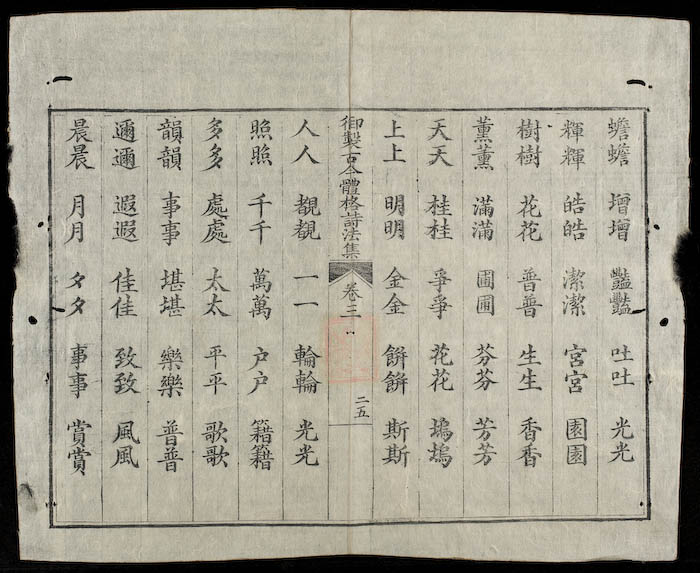 蟾蟾 增增 豔豔 吐吐 光光
輝輝 皓皓 潔潔 宮宮 園園
樹樹 花花 普普 生生 香香
薰薰 滿滿 圃圃 芬芬 芳芳
天天 桂桂 爭爭 花花 塢塢
上上 明明 金金 餅餅 斯斯
御製古今體格詩法集 卷三 二五
人人 覩覩 一一 輪輪 光光
照照 千千 萬萬 户户 籍籍
多多 處處 太太 平平 歌歌
韻韻 事事 堪堪 樂樂 普普
邇邇 遐遐 佳佳 致致 風風
晨晨 月月 夕夕 事事 賞賞